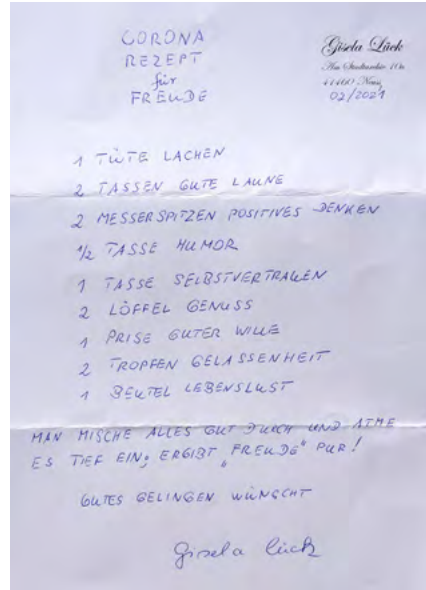 CORONA
REZEPT
für
FREUDE
Gisela Lück
Am Stadtarchiv 10a
41460 Neuss
02/2021
1 TÜTE LACHEN
2 TASSEN GUTE LAUNE
2 MESSERSPITZEN POSITIVES DENKEN
1/2 TASSE HUMOR
1 TASSE SELBSTVERTRAUEN
2 LÖFFEL GENUSS
1 PRISE GUTER WILLE
2 TROPFEN GELASSENHEIT
1 BEUTEL LEBENSLUST
MAN MISCHE ALLES GUT DURCH UND ATME
ES TIEF EIN; ERGIBT „FREUDE" PUR!
GUTES GELINGEN WÜNSCHT
Gisela Lück